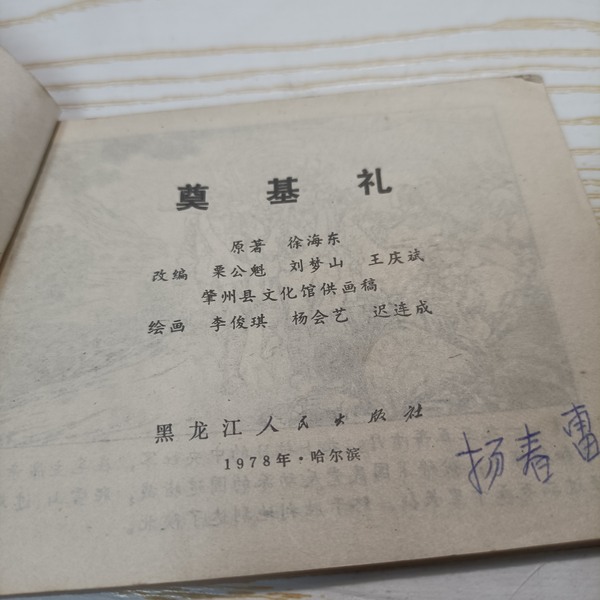 奠基礼
原著 徐海东
改编 栗公魁 刘梦山 王庆斌
肇州县文化馆供画稿
绘画 李俊琪 杨会艺 迟连成
黑龙江人民出版社
1978年·哈尔滨
扬春雷